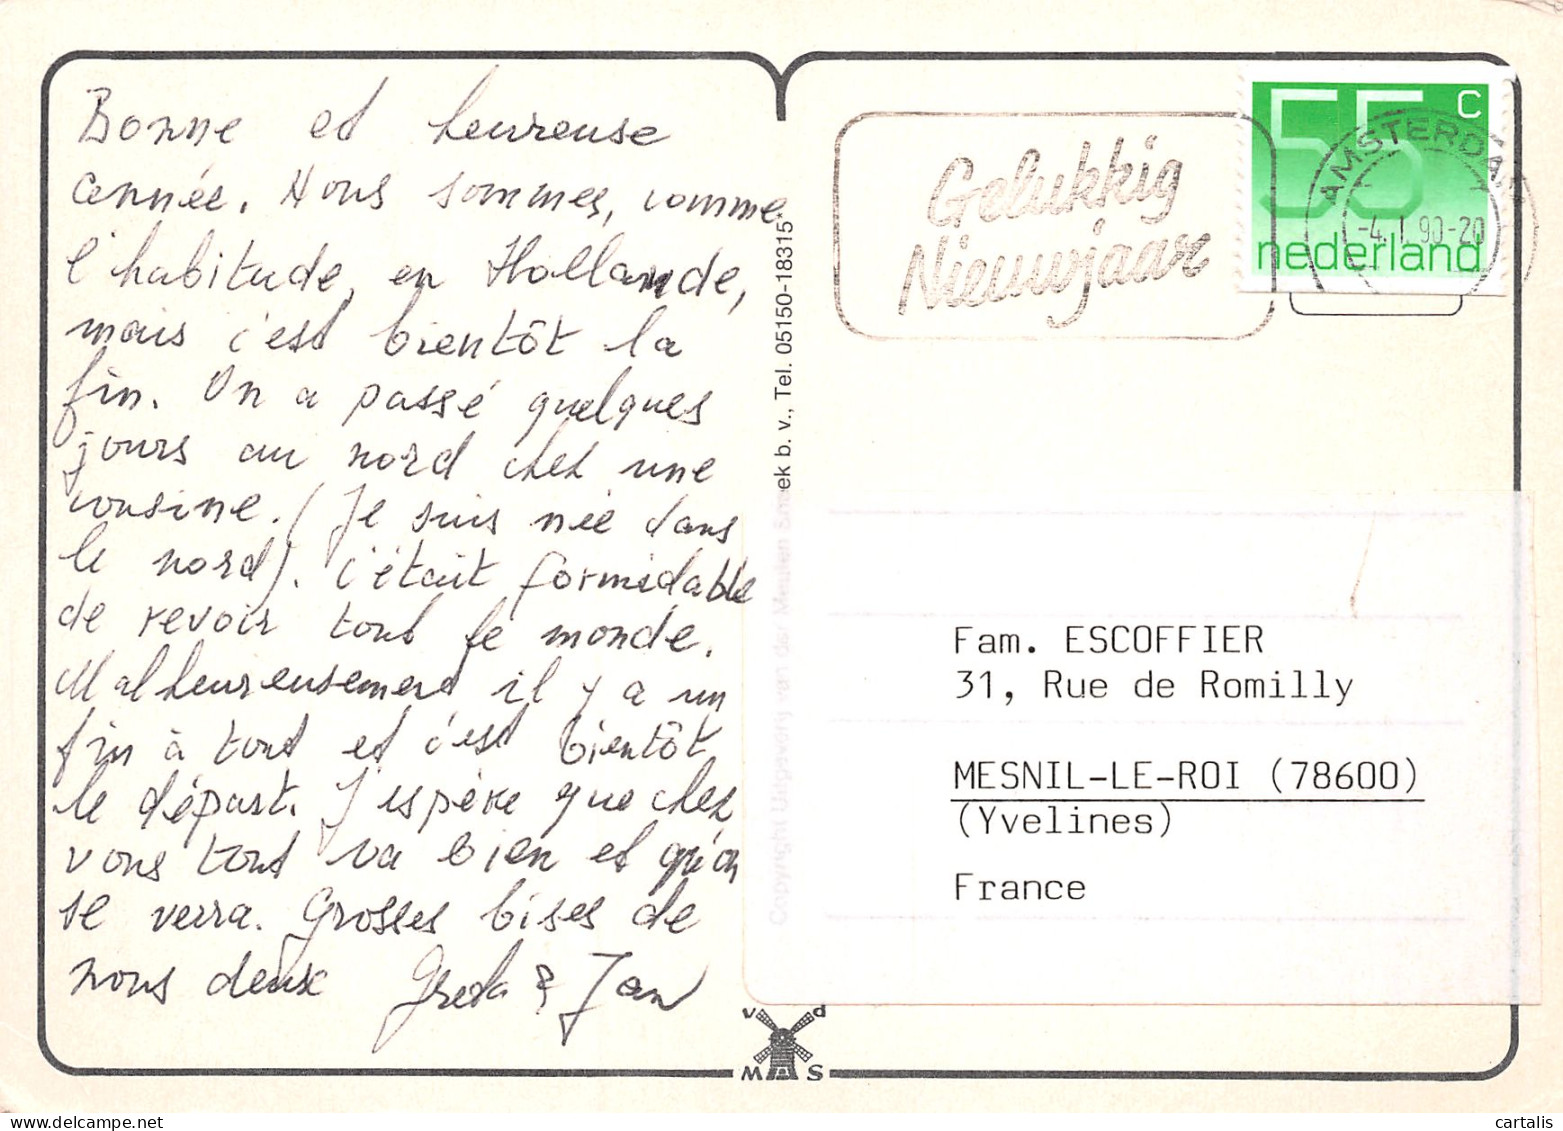 Bonne et heureuse
année. Nous sommes, comme
l'habitude, en Hollande,
mais c'est bientôt la
fin. On a passé quelques
jours au nord chez une
cousine. (Je suis née dans
le nord). C'était formidable
de revoir tout le monde.
Malheureusement il y a un
fin à tout et c'est bientôt
le départ. J'espère que chez
vous tout va bien et qu'on
se verra. Grosses bises de
nous deux Greta & Jan
Copyright Uitgeverij van der Meulen Sneek b. v., Tel. 05150-18315
Gelukkig
Nieuwjaar
55 c
nederland
AMSTERDAM
-4. I. 90-20
Fam. ESCOFFIER
31, Rue de Romilly
MESNIL-LE-ROI (78600)
(Yvelines)
France
v d
M A S
cartalis